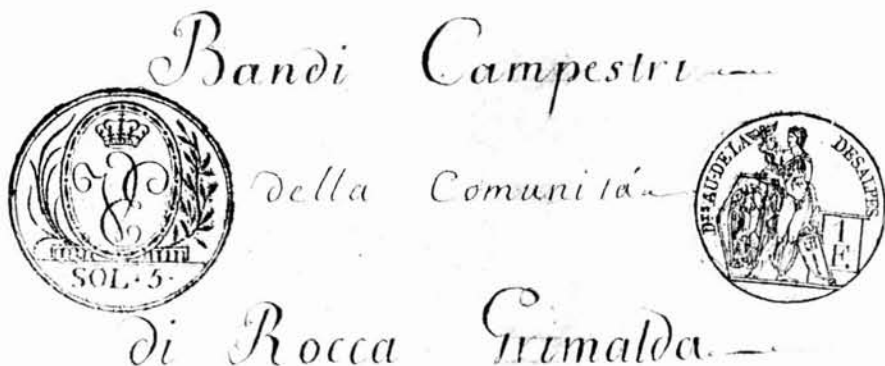 Bandi Campestri
della Comunitá
SOL·5·
DES AU-DE LA DES ALPES
1 F.
di Rocca Grimalda